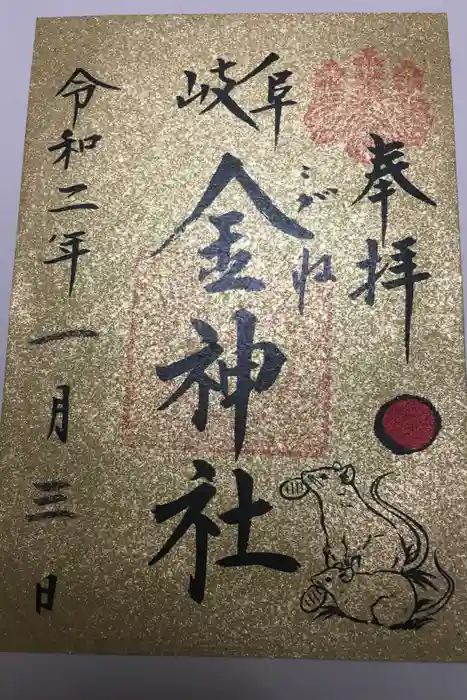 奉拝
岐阜
こがね
金神社
令和二年一月三日